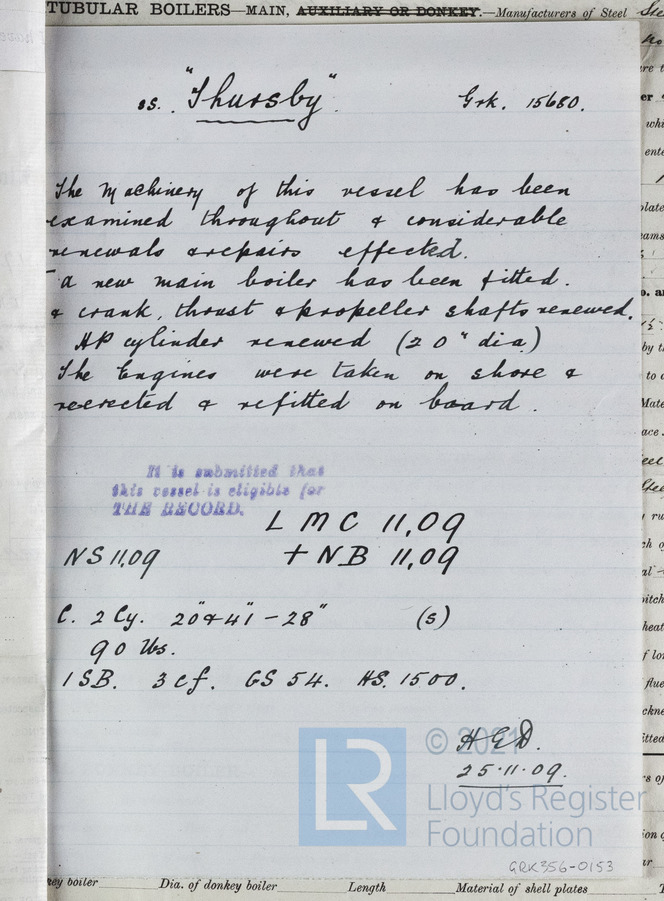 TUBULAR BOILERS—MAIN, AUXILIARY OR DONKEY.—Manufacturers of Steel
ss. "Thursby". Grk. 15680.
The Machinery of this vessel has been
examined throughout & considerable
renewals & repairs effected.
a new main boiler has been fitted.
& crank, thrust & propeller shafts renewed.
HP cylinder renewed (20" dia)
The Engines were taken on shore &
reerected & refitted on board.
It is submitted that
this vessel is eligible for
THE RECORD.
LMC 11,09
NS 11,09 + NB 11,09
C. 2 Cy. 20" & 41" – 28" (s)
90 lbs.
1 SB. 3 cf. GS 54. HS. 1500.
H G D.
25.11.09.
LR © 2021
Lloyd's Register
Foundation
GRK356-0153
key boiler Dia. of donkey boiler Length Material of shell plates